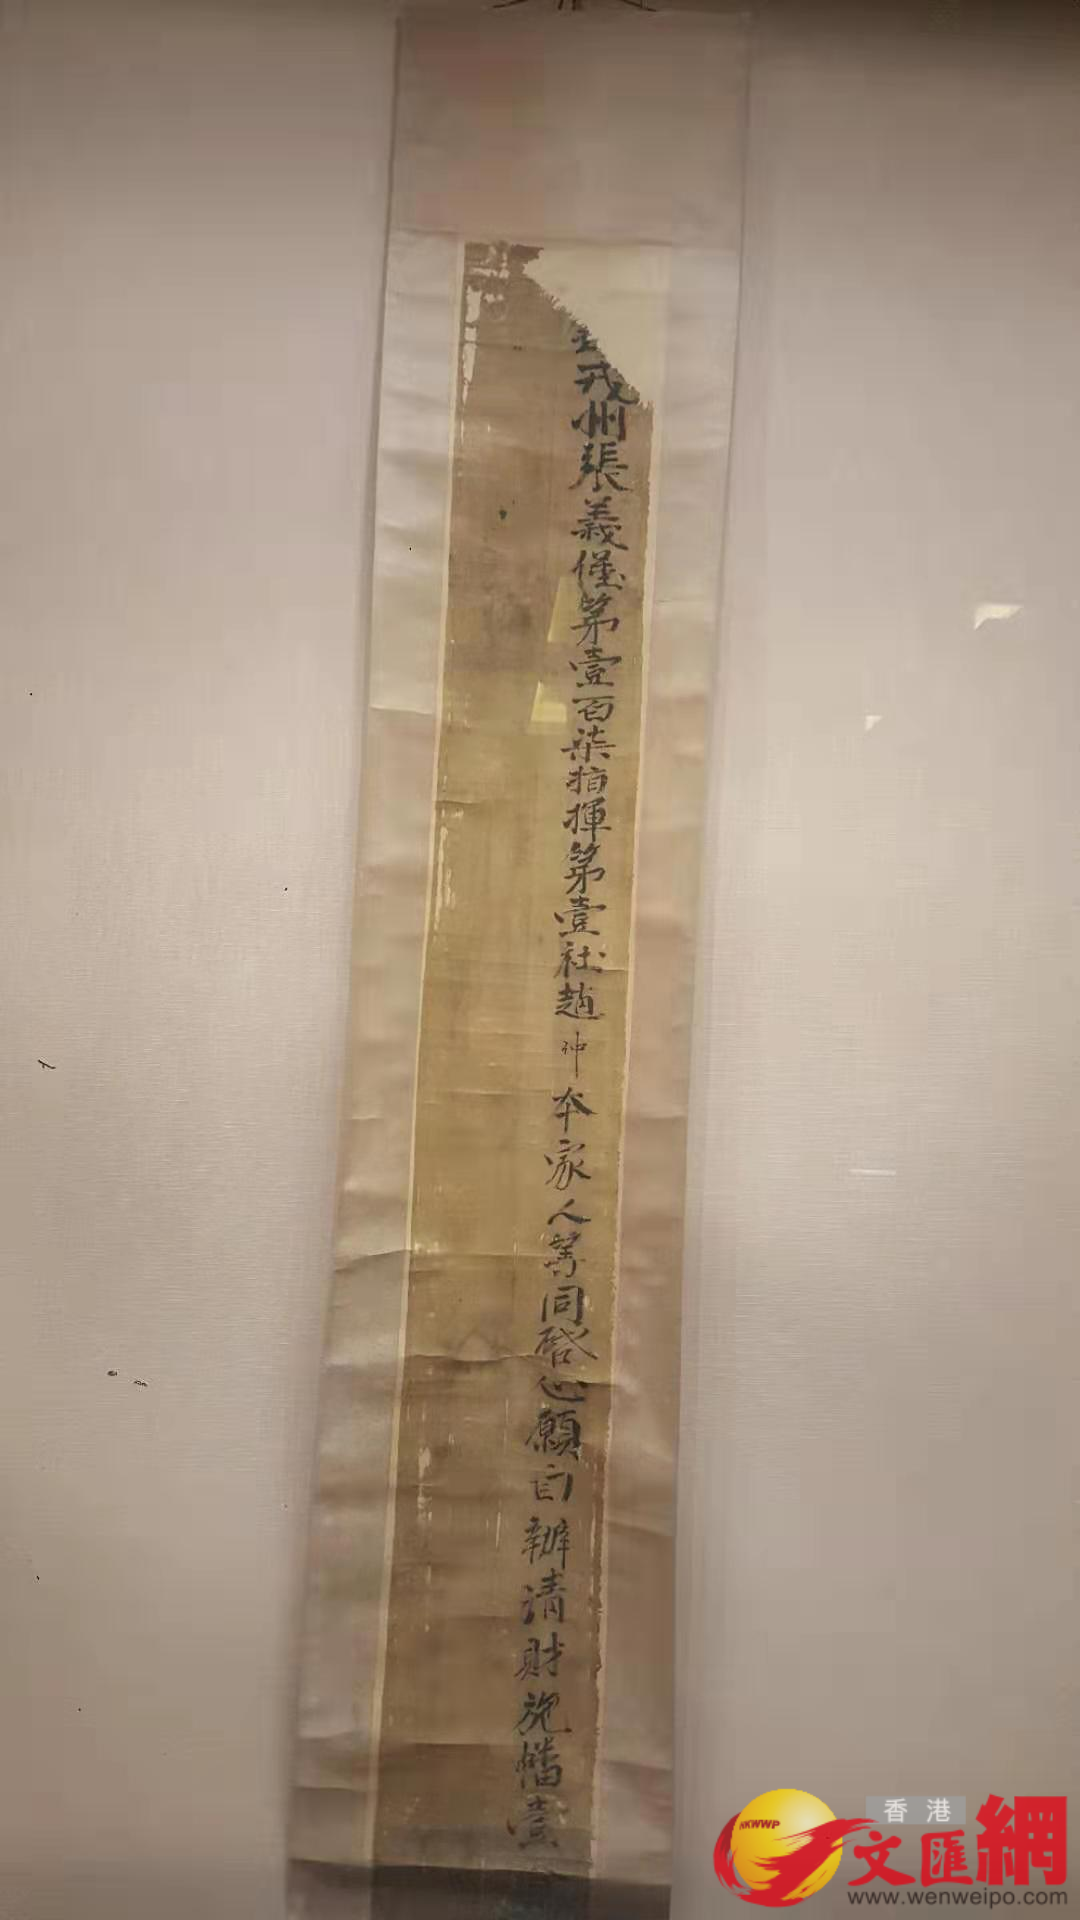 戎州張義堡第壹百柒指揮第壹社趙仲本家人等同啓心願自辦清財施幡壹
香港
HKWWP
文匯網
www.wenweipo.com